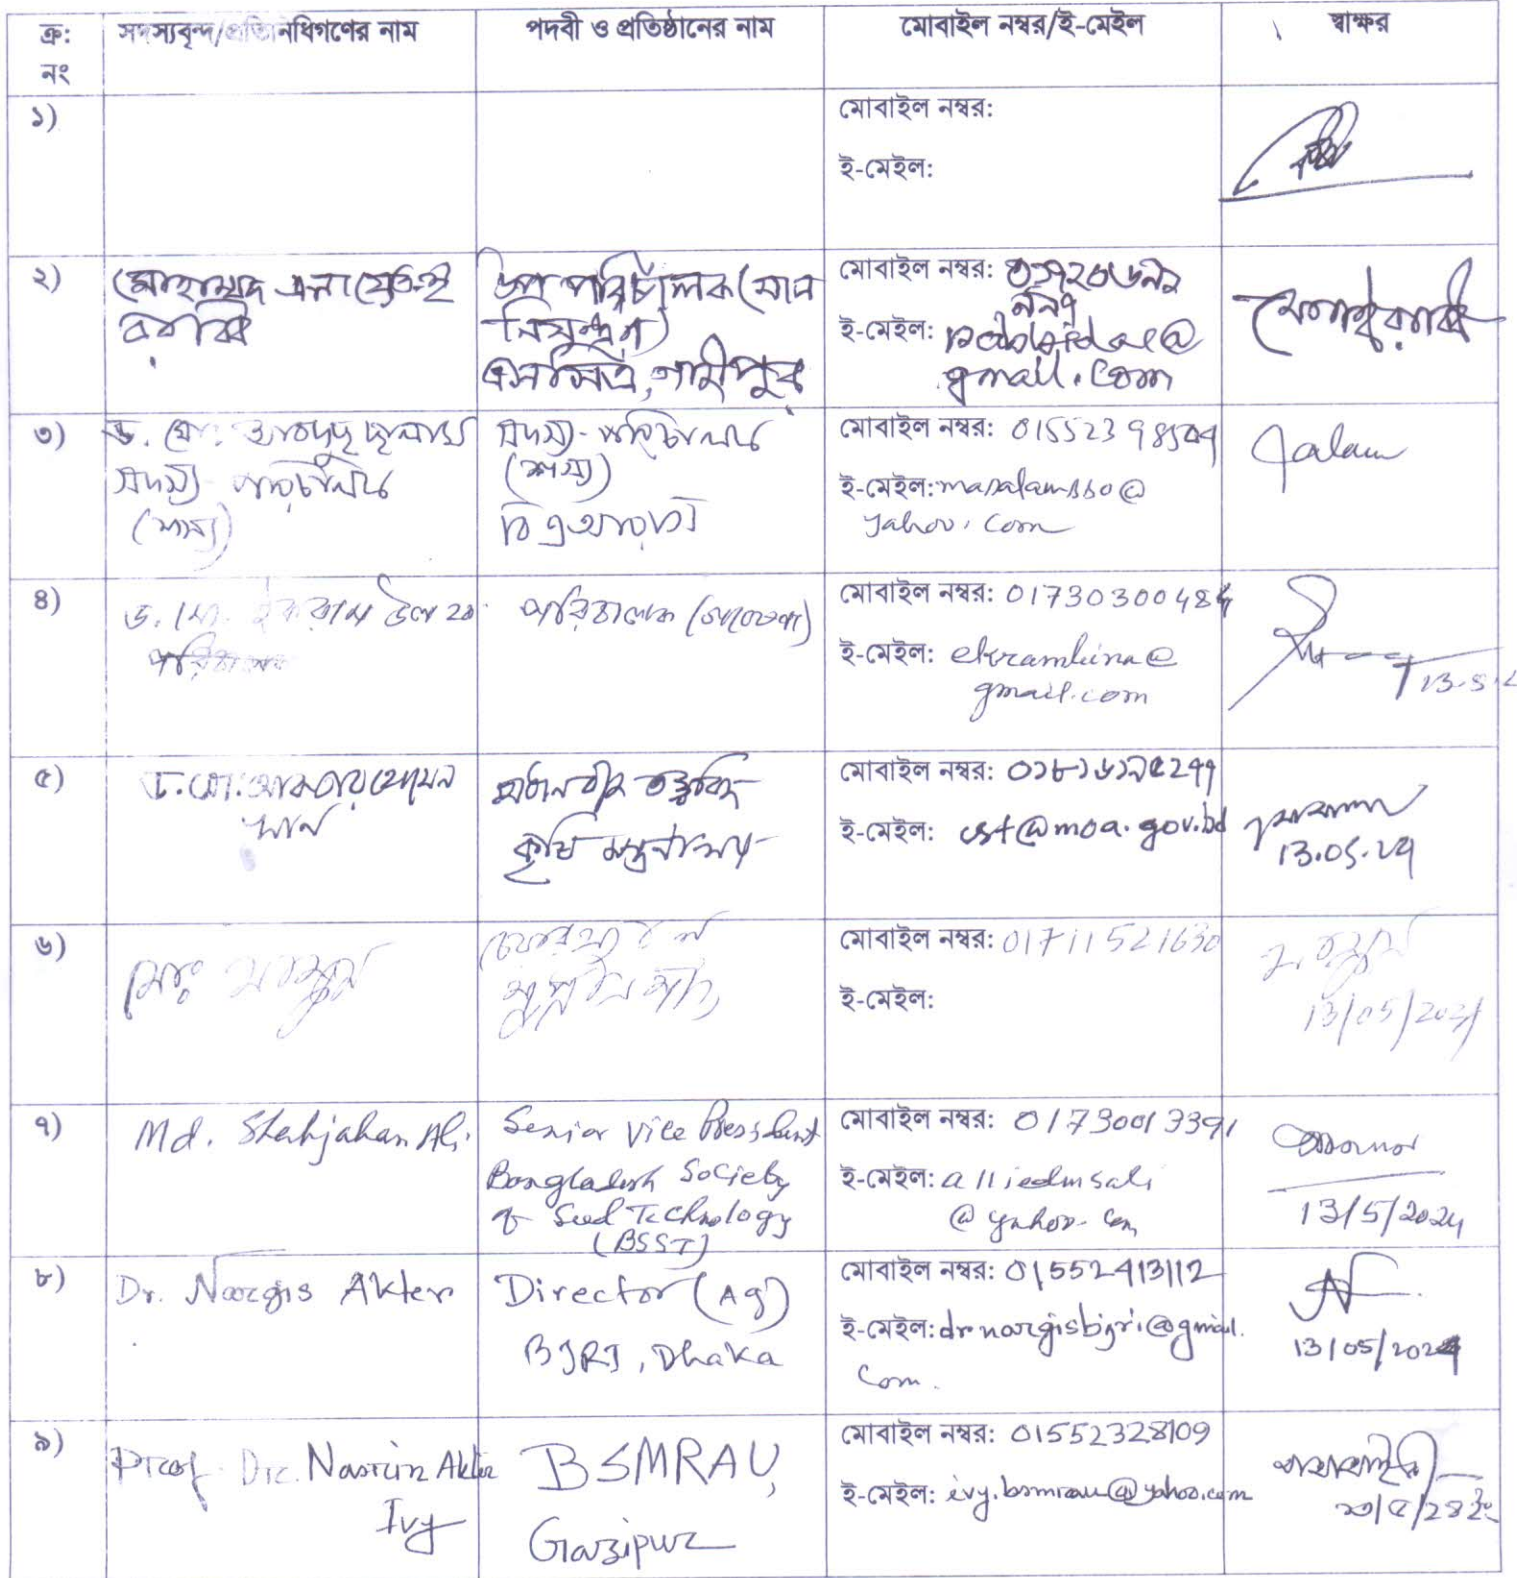 ক্র: নং সদস্যবৃন্দ/প্রতিনিধিগণের নাম পদবী ও প্রতিষ্ঠানের নাম মোবাইল নম্বর/ই-মেইল স্বাক্ষর
১)
মোবাইল নম্বর:
ই-মেইল:
২)
মোহাম্মদ এনায়েত-ই
রাব্বি
উপ পরিচালক (মান
নিয়ন্ত্রণ)
এসসিএ, গাজীপুর
মোবাইল নম্বর:
ই-মেইল:
gmail.com
৩)
ড. মো: আবদুছ ছালাম
সদস্য পরিচালক
(শস্য)
সদস্য-পরিচালক
(শস্য)
বিএআরসি
মোবাইল নম্বর: 01552398509
ই-মেইল:
yahoo.com
৪)
ড. মো. ইকরাম উল হক
পরিচালক
পরিচালক (গবেষণা)
মোবাইল নম্বর: 01730300484
ই-মেইল: ekrambina@
gmail.com
13.5.2
৫)
ড. মো: আকতার হোসেন
খান
প্রধান বীজ তত্ত্ববিদ
কৃষি মন্ত্রণালয়
মোবাইল নম্বর:
ই-মেইল: cst@moa.gov.bd
13.05.24
৬)
মোঃ
মোবাইল নম্বর: 01711521630
ই-মেইল:
13/05/2024
৭)
Md. Shahjahan Ali.
Senior Vice President
Bangladesh Society
of Seed Technology
(BSST)
মোবাইল নম্বর: 01730013391
ই-মেইল: alliedmsali
@yahoo.com
13/5/2024
৮)
Dr. Nargis Akter
Director (Ag)
BJRI, Dhaka
মোবাইল নম্বর: 01552413112
ই-মেইল: drnargisbjri@gmail.
com.
13/05/2024
৯)
Prof. Dr. Nasrin Akter
Ivy
BSMRAU,
Gazipur
মোবাইল নম্বর: 01552328109
ই-মেইল: ivy.bsmrau@yahoo.com
১৩/৫/২৪ইং